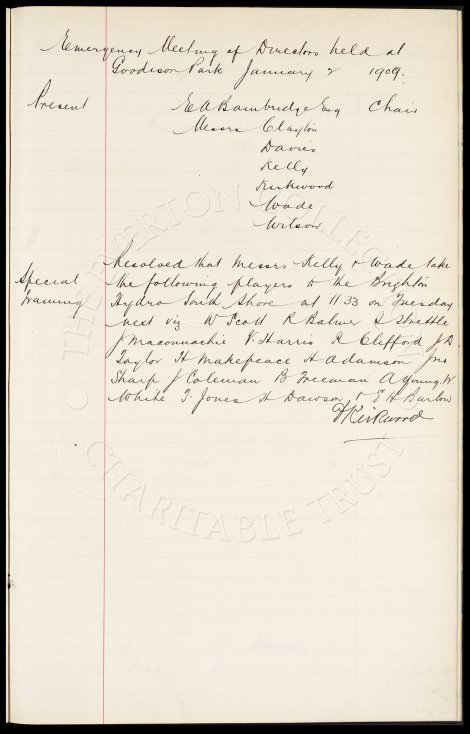 Emergency Meeting of Directors held at
Goodison Park January 2 1909.
Present E A Bainbridge Esq Chair
Messrs Clayton
Davies
Kelly
Kirkwood
Wade
Wilson
Special Training
Resolved that Messrs Kelly & Wade take
the following players to the Brighton
Hydro South Shore at 11 33 on Tuesday
next viz W Scott R Balmer S Strettle
J Maconnachie V. Harris R Clifford J D
Taylor H Makepeace H Adamson Jno
Sharp J Coleman B Freeman A Young W
White T. Jones H Dawson, & E H Barlow
Kirkwood
THE EVERTON COLLECTION
CHARITABLE TRUST
©